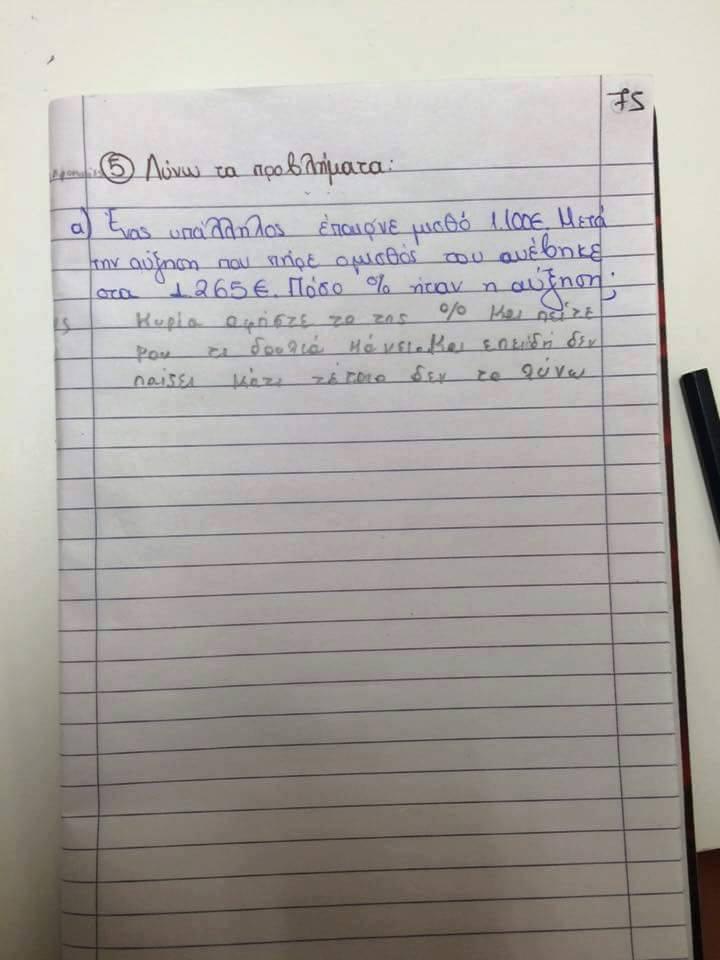 75
⑤ Λύνω τα προβλήματα:
α) Ένας υπάλληλος έπαιρνε μισθό 1.100€. Μετά
την αύξηση που πήρε ο μισθός του ανέβηκε
στα 1.265€. Πόσο % ήταν η αύξηση;
Κυρία αφήστε το της % και πείτε
μου τι δουλειά κάνει. Και επειδή δεν
παίζει κάτι τέτοιο δεν το λύνω